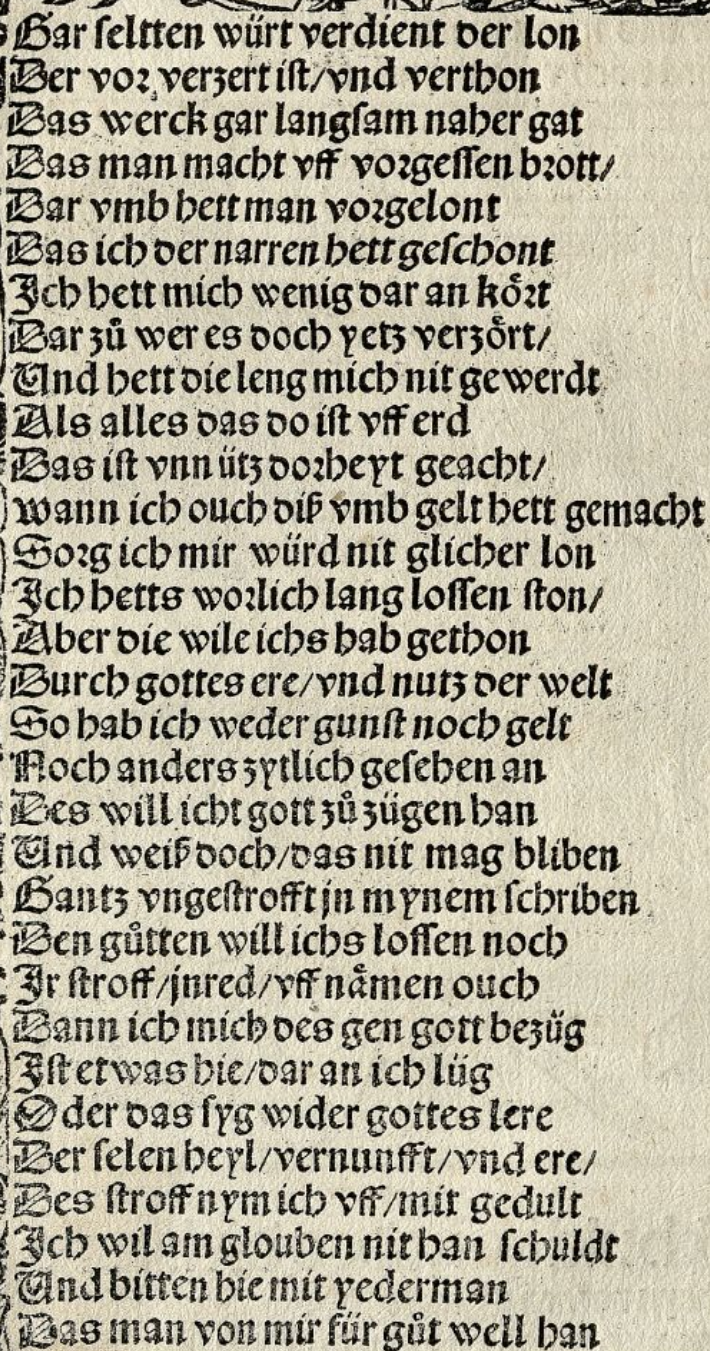 Gar seltten würt verdient der lon
Der vor verzert ist/vnd verthon
Das werck gar langsam naher gat
Das man macht vff vorgessen brott/
Dar vmb hett man vorgelont
Das ich der narren hett geschont
Ich hett mich wenig dar an kört
Dar zuͦ wer es doch yetz verzört/
Und hett die leng mich nit gewerdt
Als alles das do ist vff erd
Das ist vnnütz dorheyt geacht/
wann ich ouch diß vmb gelt hett gemacht
Sorg ich mir würd nit glicher lon
Ich hetts worlich lang lossen ston/
Aber die wile ichs hab gethon
Durch gottes ere/vnd nutz der welt
So hab ich weder gunst noch gelt
Noch anders zytlich gesehen an
Des will icht gott zuͦ zügen han
Und weiß doch/das nit mag bliben
Gantz vngestrofft jn mynem schriben
Den guͦtten will ichs lossen noch
Ir stroff/jnred/vff nämen ouch
Dann ich mich des gen gott bezüg
Ist etwas hie/dar an ich lüg
Oder das syg wider gottes lere
Der selen heyl/vernunfft/vnd ere/
Des stroff nym ich vff/mit gedult
Ich wil am glouben nit han schuldt
Und bitten hie mit yederman
Das man von mir für guͦt well han